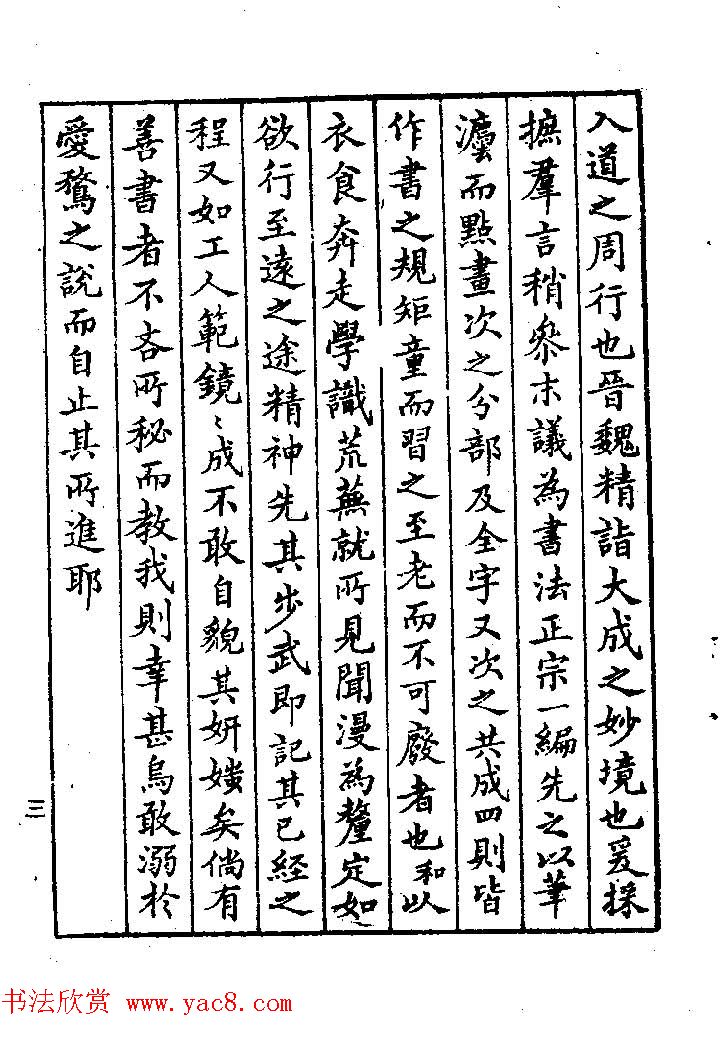 入道之周行也晉魏精詣大成之妙境也爰採
摭羣言稍叅末議為書法正宗一編先之以筆
灋而點畫次之分部及全字又次之共成四則皆
作書之規矩童而習之至老而不可廢者也和以
衣食奔走學識荒蕪就所見聞漫為釐定如
欲行至遠之途精神先其步武即記其已經之
程又如工人範鏡〻成不敢自貌其妍媸矣倘有
善書者不吝所秘而教我則幸甚烏敢溺於
愛騖之說而自止其所進耶
三
书法欣赏 www.yac8.com